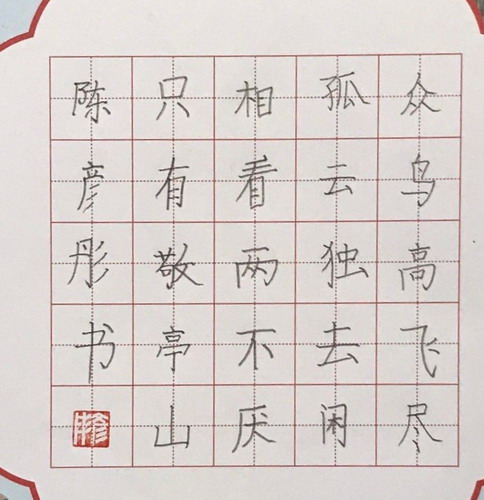 众鸟高飞尽
孤云独去闲
相看两不厌
只有敬亭山
陈彦彤书